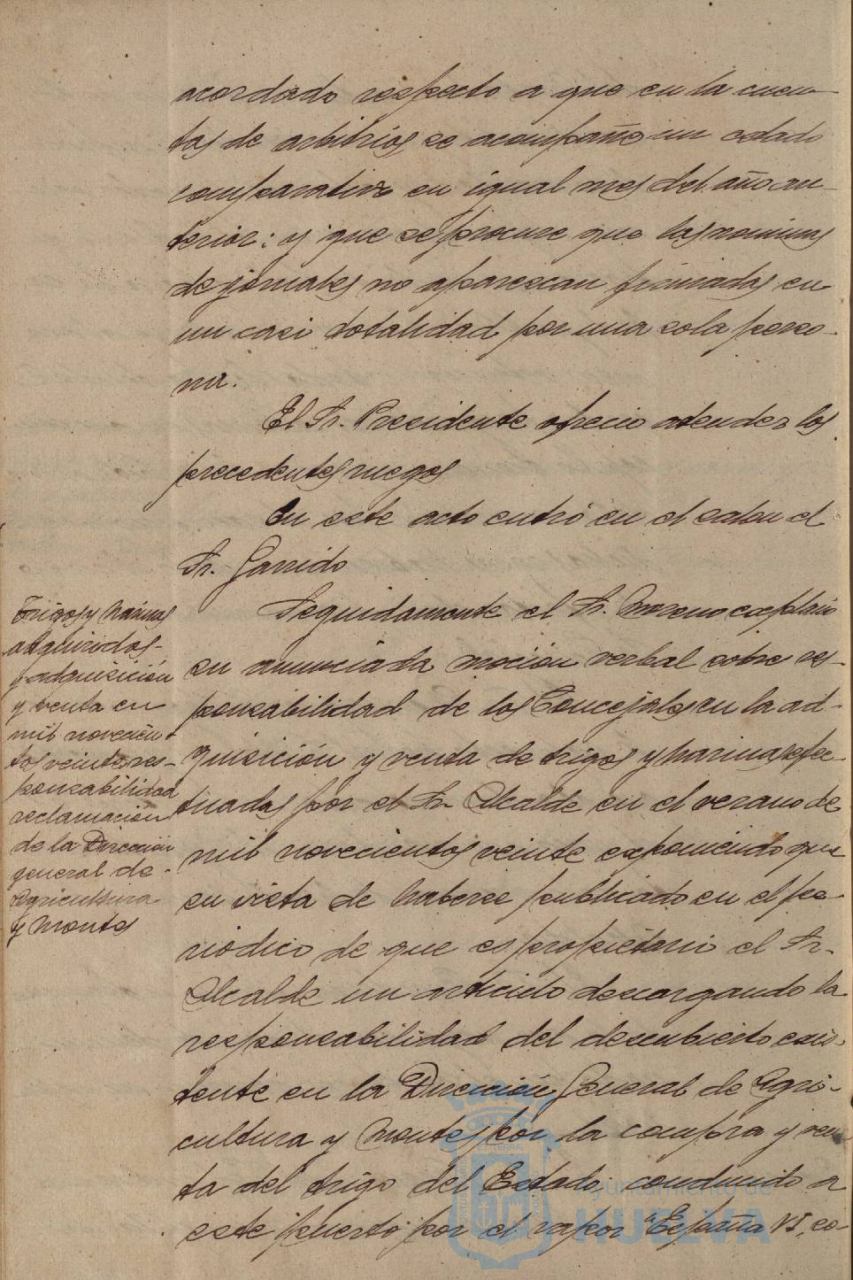 acordado respecto a que en la cuen-
tas de arbitrios se acompañe un estado
comparativo en igual mes del año an-
terior: y que se procure que las nominas
de jornales no aparezcan firmadas en
un casi totalidad por una sola perso-
na.
El Sr. Presidente ofrecio atender los
precedentes ruegos
En este acto entró en el salon el
Sr. Garrido
Trigos y harinas
adquiridos-
y adquisición
y venta en
mil novecien-
tos veinte res-
ponsabilidad
reclamacion
de la Dirección
general de-
Agricultura
y Montes
Seguidamente el Sr. Moreno explanó
su anunciada moción verbal sobre res-
ponsabilidad de los Concejales en la ad-
quisición y venta de trigos y harinas efec-
tuadas por el Sr. Alcalde en el verano de
mil novecientos veinte exponiendo que
en vista de haberse publicado en el pe-
riodico de que es propietario el Sr.
Alcalde un articulo descargando la
responsabilidad del descubierto exis-
tente en la Dirección General de Agri-
cultura y Montes por la compra y ven-
ta del trigo del Estado, conducido a
este puerto por el vapor "España VI, co-
Ayuntamiento de
HUELVA